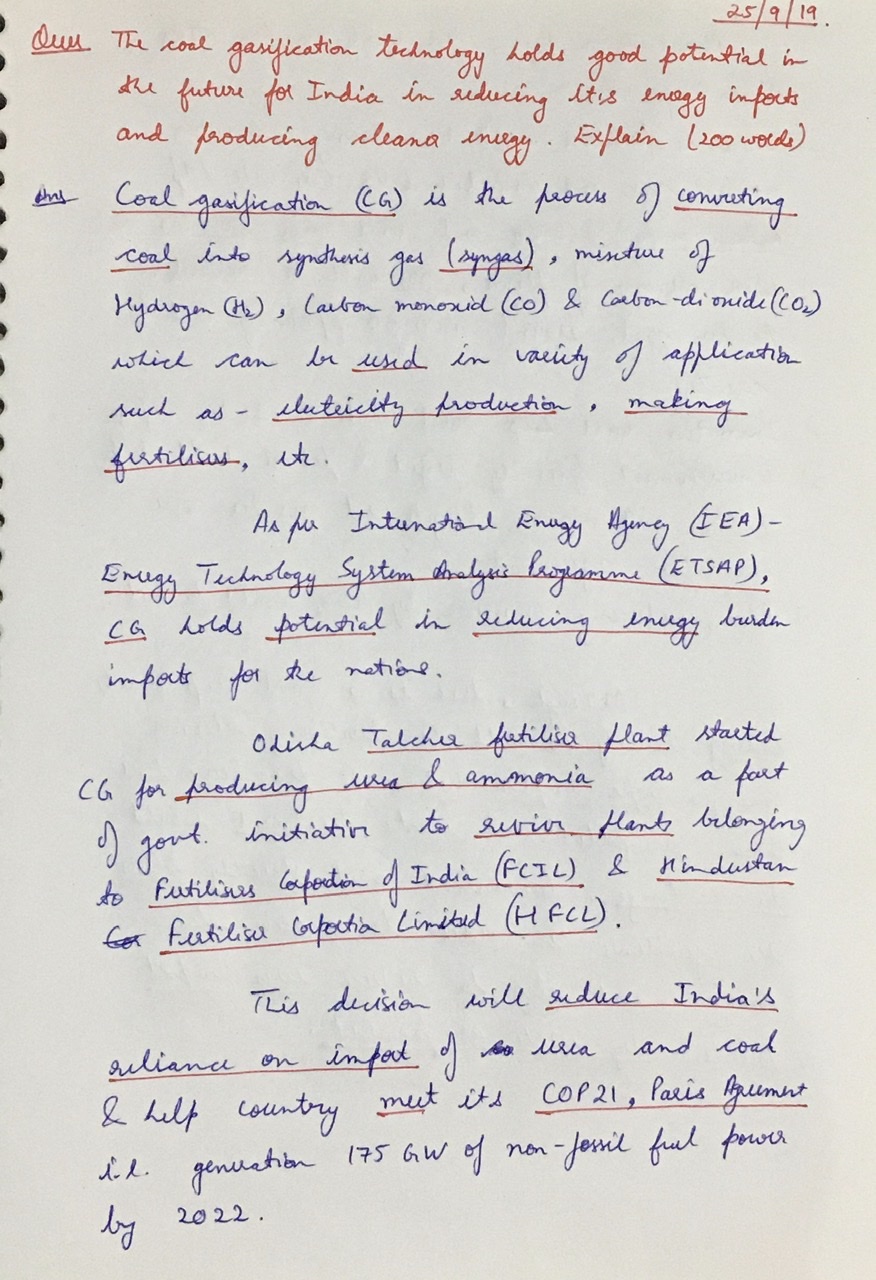 25/9/19.
Ques The coal gasification technology holds good potential in
the future for India in reducing it's energy imports
and producing cleaner energy. Explain (200 words)
Ans Coal gasification (CG) is the process of converting
coal into synthesis gas (syngas), mixture of
Hydrogen (H₂), Carbon monoxid (CO) & Carbon-dioxide (CO₂)
which can be used in variety of application
such as - electricity production, making
fertilisers, etc.
As per International Energy Agency (IEA)-
Energy Technology System Analysis Programme (ETSAP),
CG holds potential in reducing energy burden
imports for the nations.
Odisha Talcher fertiliser plant started
CG for producing urea & ammonia as a part
of govt. initiative to revive plants belonging
to Fertilisers Corportion of India (FCIL) & Hindustan
Cor Fertiliser Corportion Limited (HFCL).
This decision will reduce India's
reliance on import of urea and coal
& help country meet its COP21, Paris Agreement
i.e. generation 175 GW of non-fossil fuel power
by 2022.